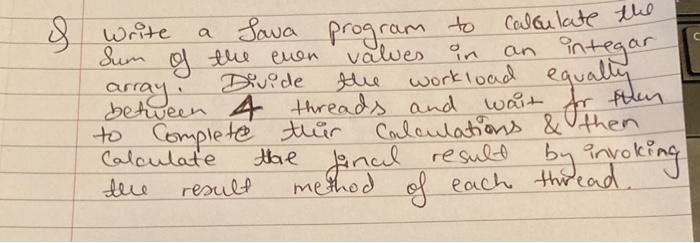 Q Write a Java program to Calculate the
Sum of the even values in an integar
array. Divide the workload equally
between 4 threads and wait for them
to Complete their Calculations & then
Calculate the final result by invoking
the result method of each thread.